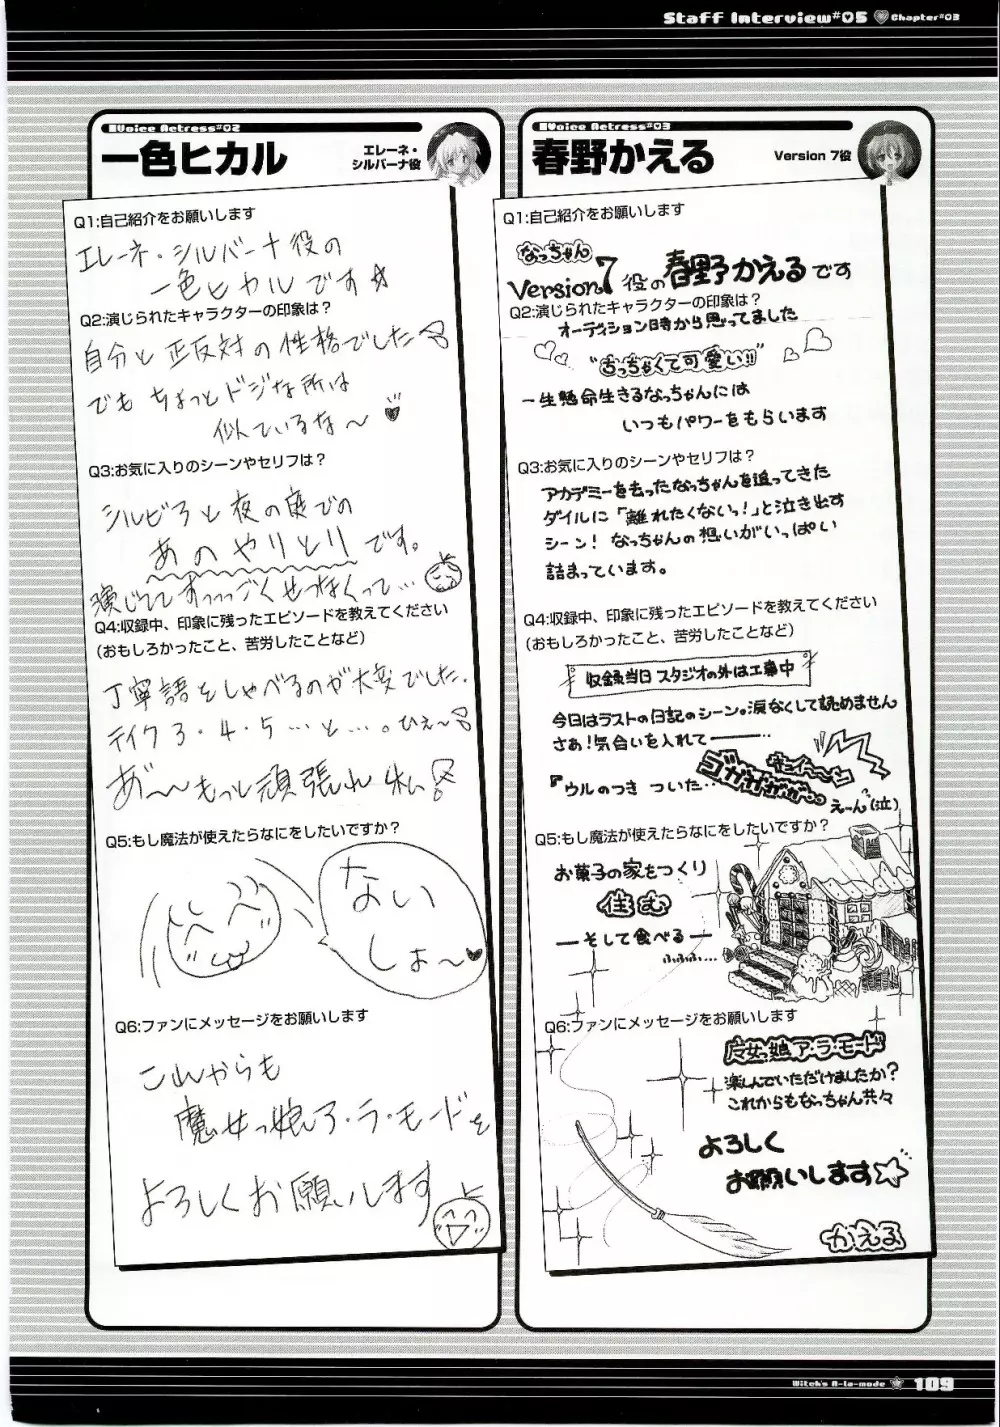 Staff Interview#05 Chapter#03
Voice Actress#02
一色ヒカル
エレーネ・
シルバーナ役
Q1:自己紹介をお願いします
エレーネ・シルバーナ役の
一色ヒカルです☆
Q2:演じられたキャラクターの印象は？
自分と正反対の性格でした
でもちょっとドジな所は
似ているな〜♥
Q3:お気に入りのシーンやセリフは？
シルビアと夜の庭での
あのやりとりです。
演じててすっっっごくせつなくって…
Q4:収録中、印象に残ったエピソードを教えてください
（おもしろかったこと、苦労したことなど）
丁寧語をしゃべるのが大変でした.
テイク3・4・5…と…。ひぇ〜
あ゛〜もっと頑張れ私
Q5:もし魔法が使えたらなにをしたいですか？
ない
しょ〜♥
Q6:ファンにメッセージをお願いします
これからも
魔女っ娘ア・ラ・モードを
よろしくお願いします
Voice Actress#03
春野かえる
Version 7役
Q1:自己紹介をお願いします
なっちゃん
Version7役の春野かえるです
Q2:演じられたキャラクターの印象は？
オーディション時から思ってました
"ちっちゃくて可愛い!!"
一生懸命生きるなっちゃんには
いつもパワーをもらいます
Q3:お気に入りのシーンやセリフは？
アカデミーを去ったなっちゃんを追ってきた
ダイルに「離れたくないっ!」と泣き出す
シーン! なっちゃんの想いがいっぱい
詰まっています。
Q4:収録中、印象に残ったエピソードを教えてください
（おもしろかったこと、苦労したことなど）
収録当日 スタジオの外は工事中
今日はラストの日記のシーン。涙なくして読めません
さあ!気合いを入れて―――‥
『ウルのつき ついた‥
ゴガガガガガ‥
えーん?(泣)
Q5:もし魔法が使えたらなにをしたいですか？
お菓子の家をつくり
住む
―そして食べる―
ふふふ…
Q6:ファンにメッセージをお願いします
魔女っ娘ア・ラ・モード
楽しんでいただけましたか?
これからもなっちゃん共々
よろしく
お願いします☆
かえる
Witch's A-la-mode 109